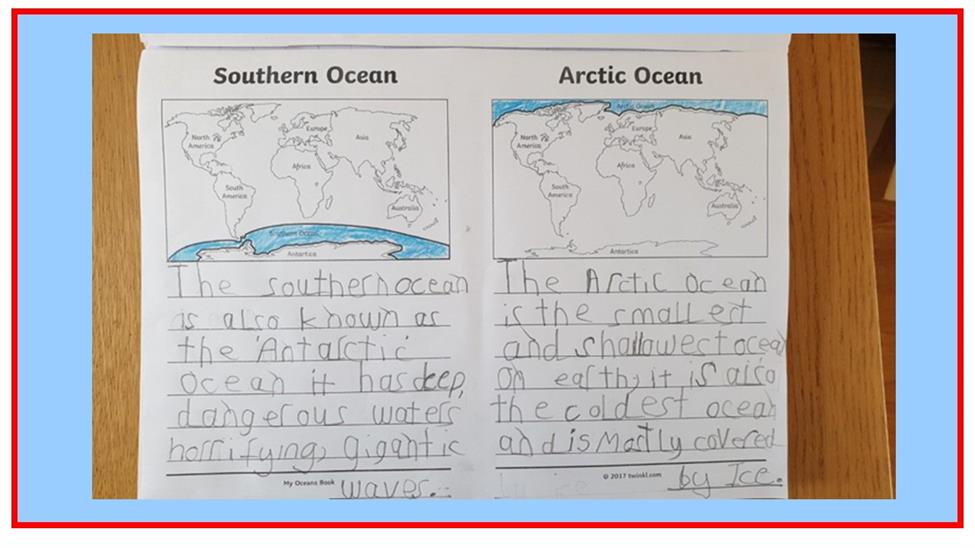 Southern Ocean
North America
South America
Europe
Africa
Asia
Australia
Southern Ocean
Antarctica
The southern ocean
is also known as
the Antarctic
ocean it has deep,
dangerous waters
horrifying, gigantic
waves.
My Oceans Book
Arctic Ocean
Arctic Ocean
North America
South America
Europe
Africa
Asia
Australia
Antarctica
The Arctic ocean
is the smallest
and shallowest ocean
on earth, it is also
the coldest ocean
and is Mostly covered
by Ice.
© 2017 twinkl.com